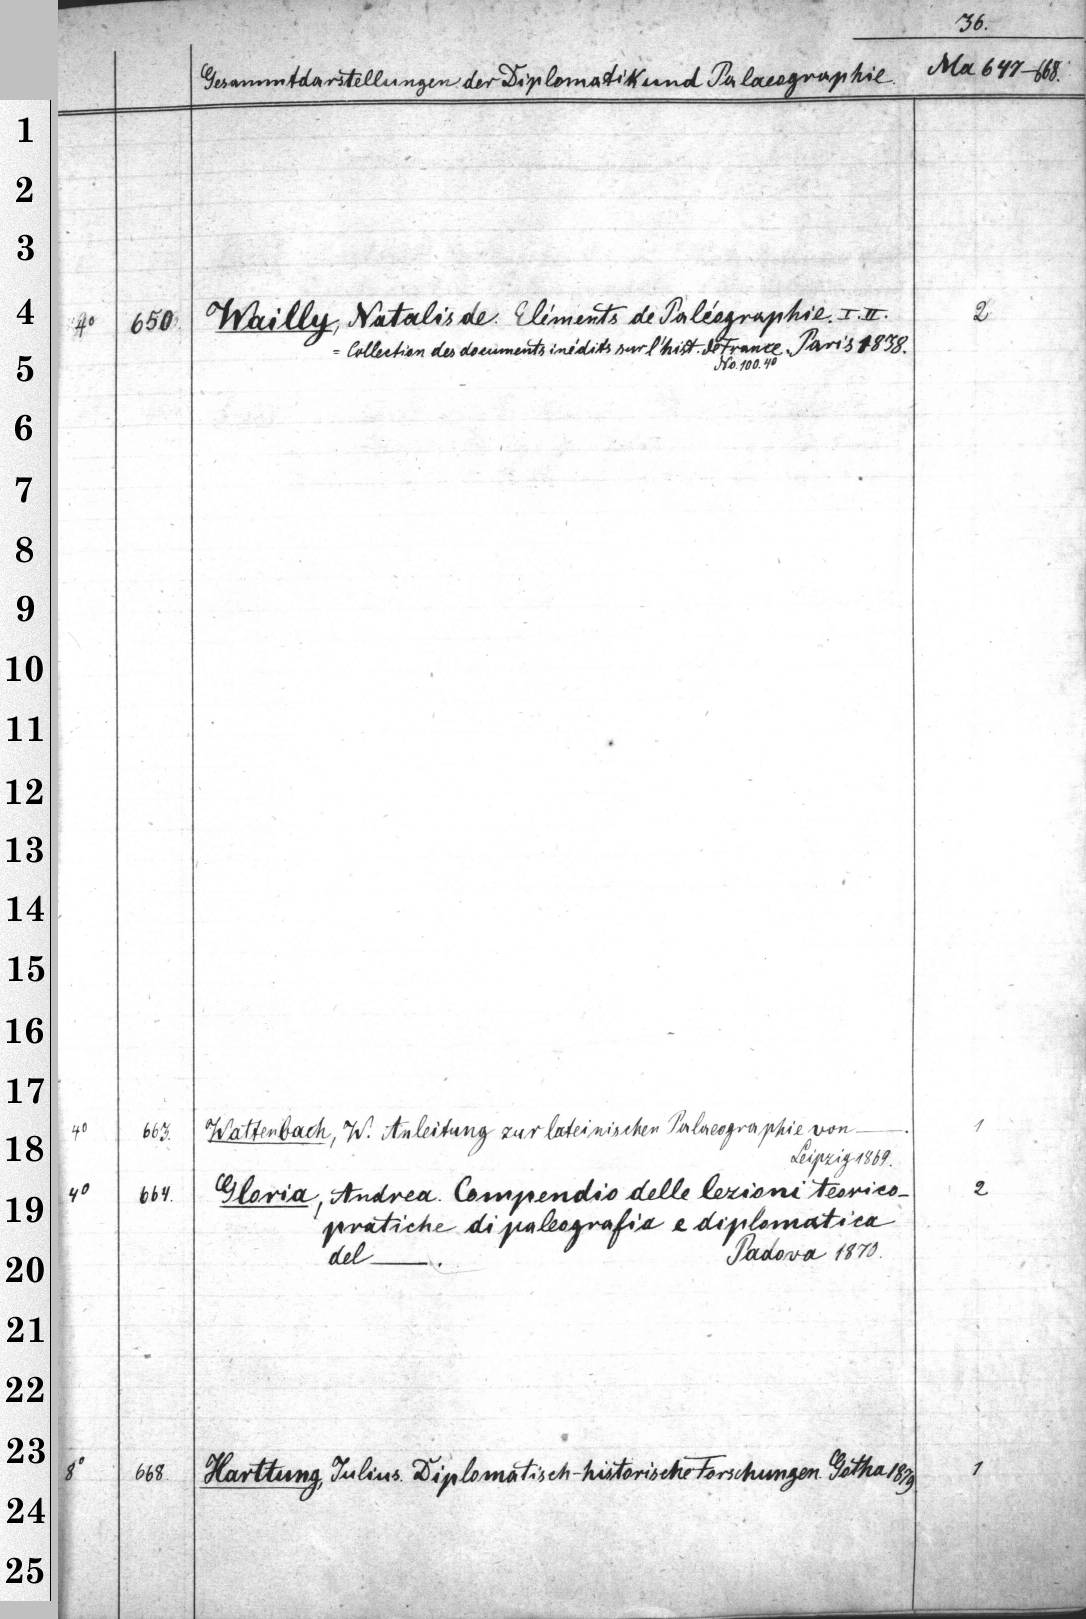 36.
Gesammtdarstellungen der Diplomatik und Palaeographie. Ma 647-668.
1
2
3
4
4° 650. Wailly, Natalis de. Eléments de Paléographie. I. II. 2
= Collection des documents inédits sur l'hist. de France. Paris 1838.
No. 100. 4°
5
6
7
8
9
10
11
12
13
14
15
16
17
4° 663. Wattenbach, W. Anleitung zur lateinischen Palaeographie von —. 1
18
Leipzig 1869.
4° 664. Gloria, Andrea. Compendio delle lezioni teorico- 2
19
pratiche di paleografia e diplomatica
del —. Padova 1870.
20
21
22
23
8° 668. Harttung, Julius. Diplomatisch-historische Forschungen. Gotha 1879 1
24
25